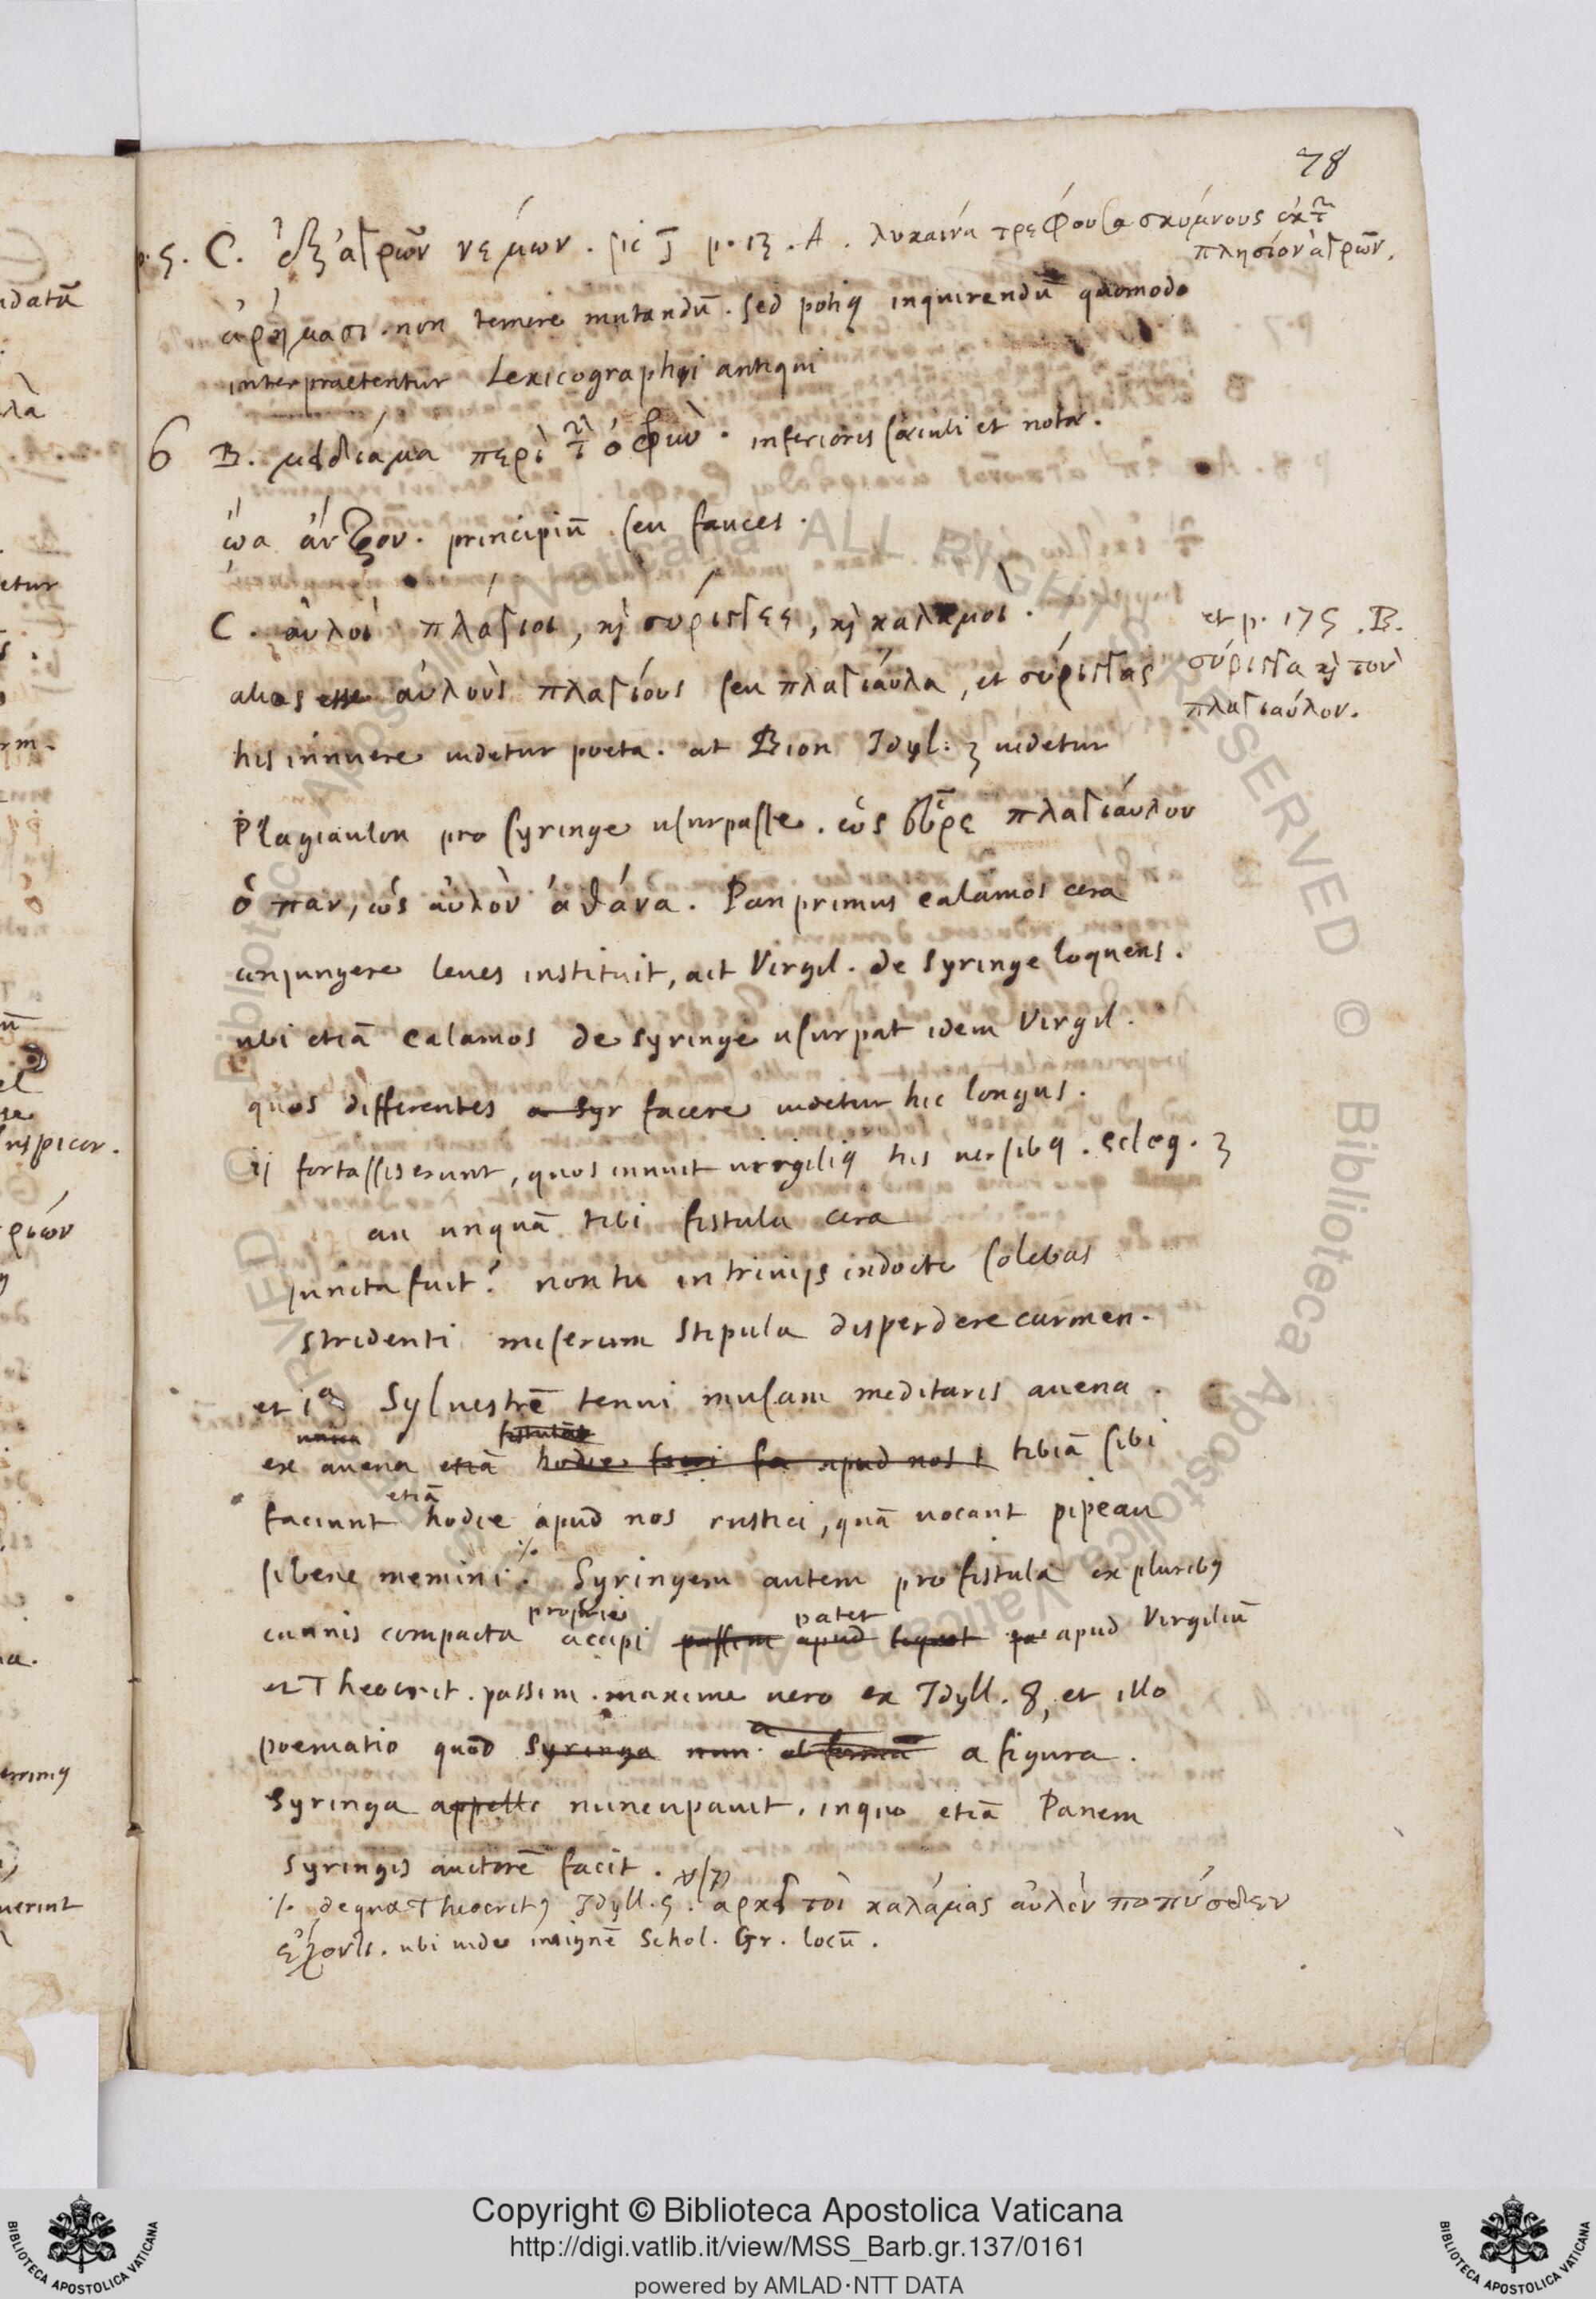 78
p. 5. C. ἐξ ἀγρῶν νέμων. sic p. 13. A. λύκαινα τρέφουσα σκύμνους ἐκ τῶν
πλησίον ἀγρῶν.
non temere mutandū. sed potiꝰ inquirendū quomodo
interpraetentur Lexicographi antiqui
6 B. μειδίαμα περὶ τὴν ὀφρὺν. inferioris saeculi et notae.
ὦα ἄντρου. principiū seu fauces.
C. αὐλοὶ πλάγιοι, κỳ σύριγγες, κỳ καλαμοι.
et p. 175. B.
σύριγγα κỳ τὸν
πλαγιαύλον.
alias esse αὐλοὺς πλαγίους seu πλαγιάυλα, et σύριγγας
his innuere uidetur poeta. at Bion Idyl: 3 uidetur
Plagiaulon pro syringe usurpasse. ὡς εὗρε πλαγίαυλον
ὁ πὰν, ὡς αὐλὸν ἀθάνα. Pan primus calamos cera
conjungere leues instituit, ait Virgil. de syringe loquens.
ubi etiā calamos de syringe usurpat idem Virgil.
quos differentes a syr facere uidetur hic longus.
ij fortassis erunt, quos innuit uirgiliꝰ his uersibꝰ. Eclog. 3
an unquā tibi fistula cera
juncta fuit? non tu in triuijs indocte solebas
stridenti miserum stipula disperdere carmen.
et 1ᵃ Syluestrē tenui musam meditaris auena.
fistulas
ex auena etiā hodie apud nos tibiā sibi
etiā
faciunt hodie apud nos rustici, quā uocant pipeau
si bene memini ·/. Syringem autem pro fistula ex pluribꝰ
proprie patet
cannis compacta accipi passim apud apud Virgiliū
et Theocrit. passim. maxime uero ex Idyll. 8, et illo
poematio quod syringa nun a figura.
Syringa appell nuncupauit. in quo etiā Panem
syringis auctorē facit.
·/. de qua Theocritꝰ Idyll. 5. ἀρκεῖ τοὶ καλάμας αὐλὸν ποππύσδεν
ἔχοντι. ubi uide insignē Schol. Gr. locū.
Copyright © Biblioteca Apostolica Vaticana
http://digi.vatlib.it/view/MSS_Barb.gr.137/0161
powered by AMLAD·NTT DATA
BIBLIOTECA APOSTOLICA VATICANA
BIBLIOTECA APOSTOLICA VATICANA